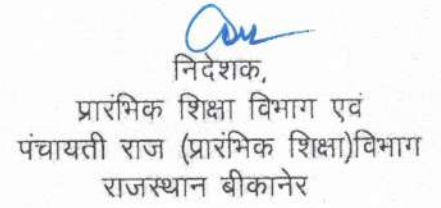 निदेशक,
प्रारंभिक शिक्षा विभाग एवं
पंचायती राज (प्रारंभिक शिक्षा)विभाग
राजस्थान बीकानेर